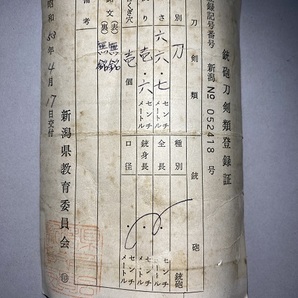 銃砲刀剣類登録証
登録記号番号 新潟 № 052418 号
種別 刀
長さ 六六・七 センチメートル
反り 壱・六 センチメートル
目くぎ穴 壱 個
銘文 (表) 無銘 (裏) 無銘
備考
種別 銃砲
全長 センチメートル
銃身長 センチメートル
口径 センチメートル
昭和53年4月17日交付
新潟県教育委員会